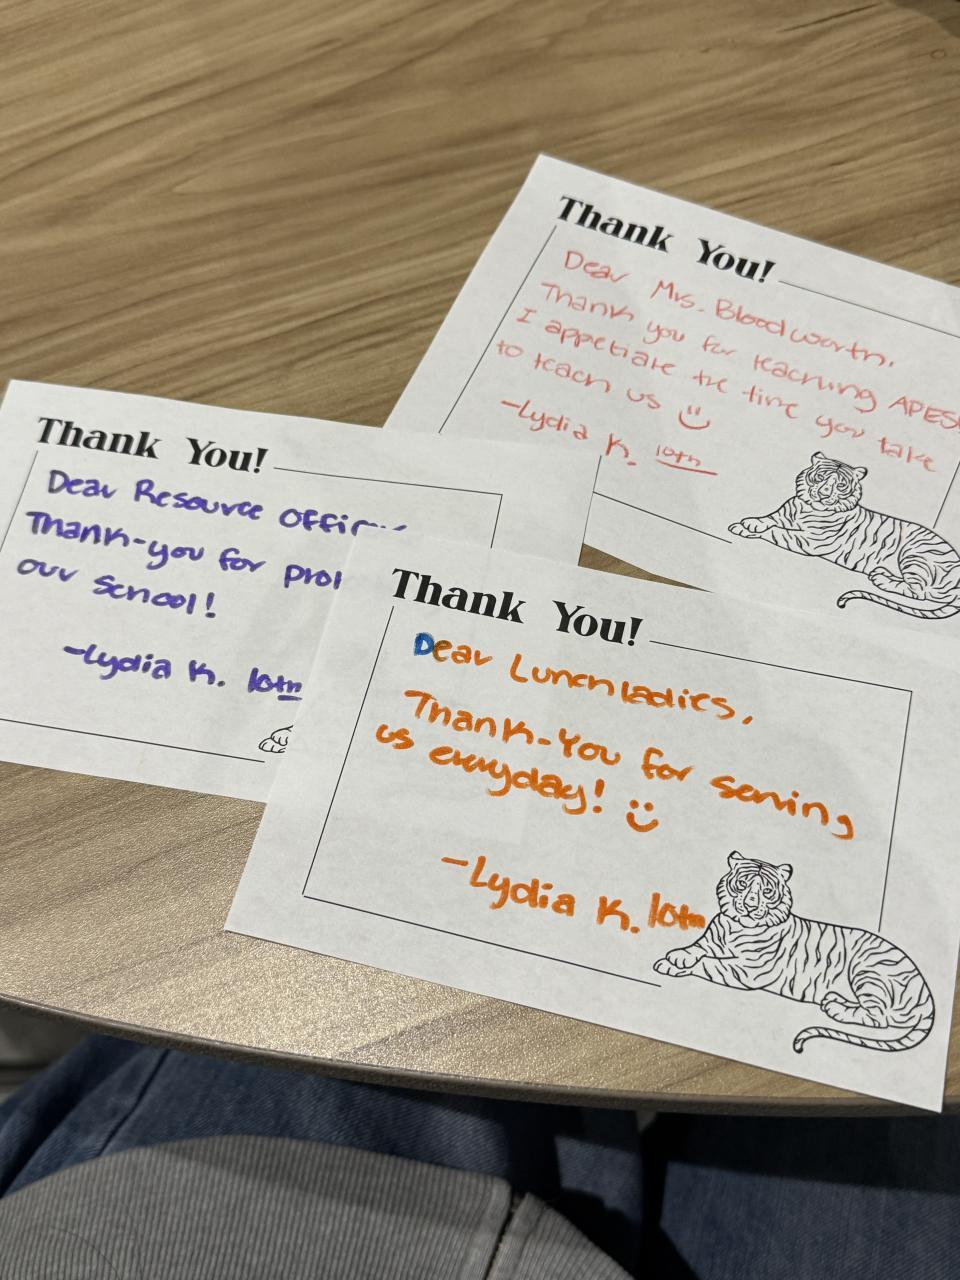 Thank You!
Dear Mrs. Bloodworth,
Thank you for teaching APES!
I appetiate the time you take
to teach us
-Lydia K. 10th
Thank You!
Dear Resource
Thank-you for
our school!
-Lydia K. 10th
Thank You!
Dear Lunch ladies,
Thank-You for serving
us everyday!
-Lydia K. 10th